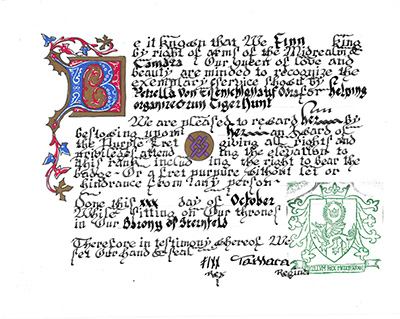 Be it known that We Finn King
by right of arms of the Midrealm &
Tamara Our Queen of love and
beauty are minded to recognize the
exemplary service shown by
Petrella Von for helping
organize run Tiger Hunt
We are pleased to reward by
bestowing upon an award of
the Purple Fret giving all rights and
privileges attend ing the elevation to
this rank includ ing the right to bear the
badge Or a fret purpure without let or
hindrance from any person
Done this xxx day of October
While sitting on Our thrones
in Our Barony of Sternfeld
Therefore in testimony whereof We
set Our hand & seal
Finn Tamara
Rex Regina